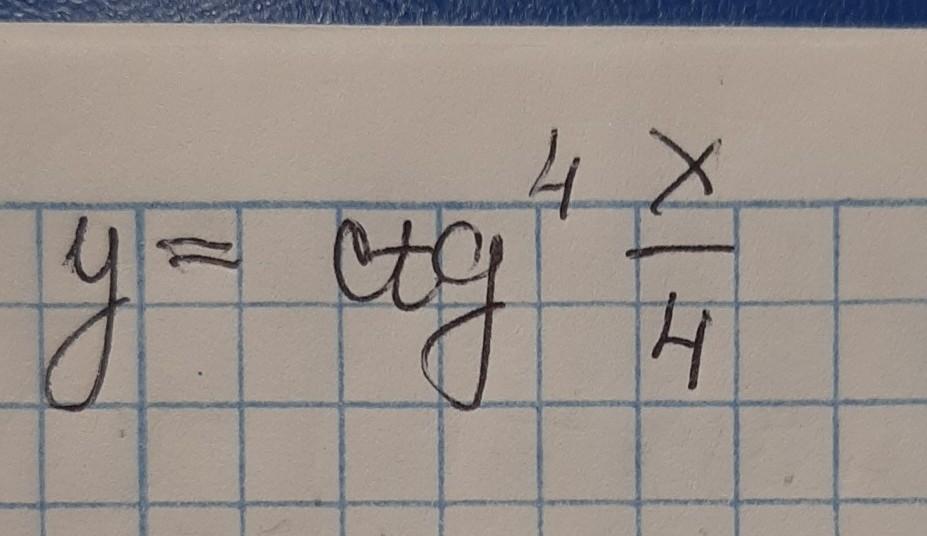 y = ctg⁴ x/4